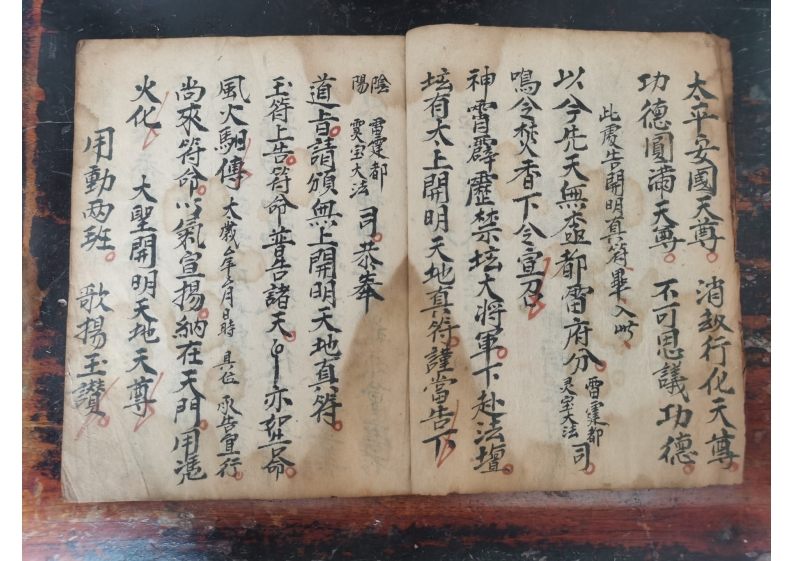 太平安國天尊。消劫行化天尊。
功德圓滿天尊。不可思議功德。
此處告開明真符畢入此
以今先天無極都雷府分。雷霆都灵宝大法司。
鳴令焚香下令宣召
神霄霹靂禁坛大將軍下赴法壇。
坛有太上開明天地真符。謹當告下
陰陽雷霆都灵宝大法司。恭奉
道旨。請頒無上開明天地真符。
玉符上告。符命普告諸天。亦如告命
風火馹傳太歲年月日時具位承告宣行
尚來符命以氣宣揚。納在天門。用憑
火化 大聖開明天地天尊
用動两班。歌揚玉讚。